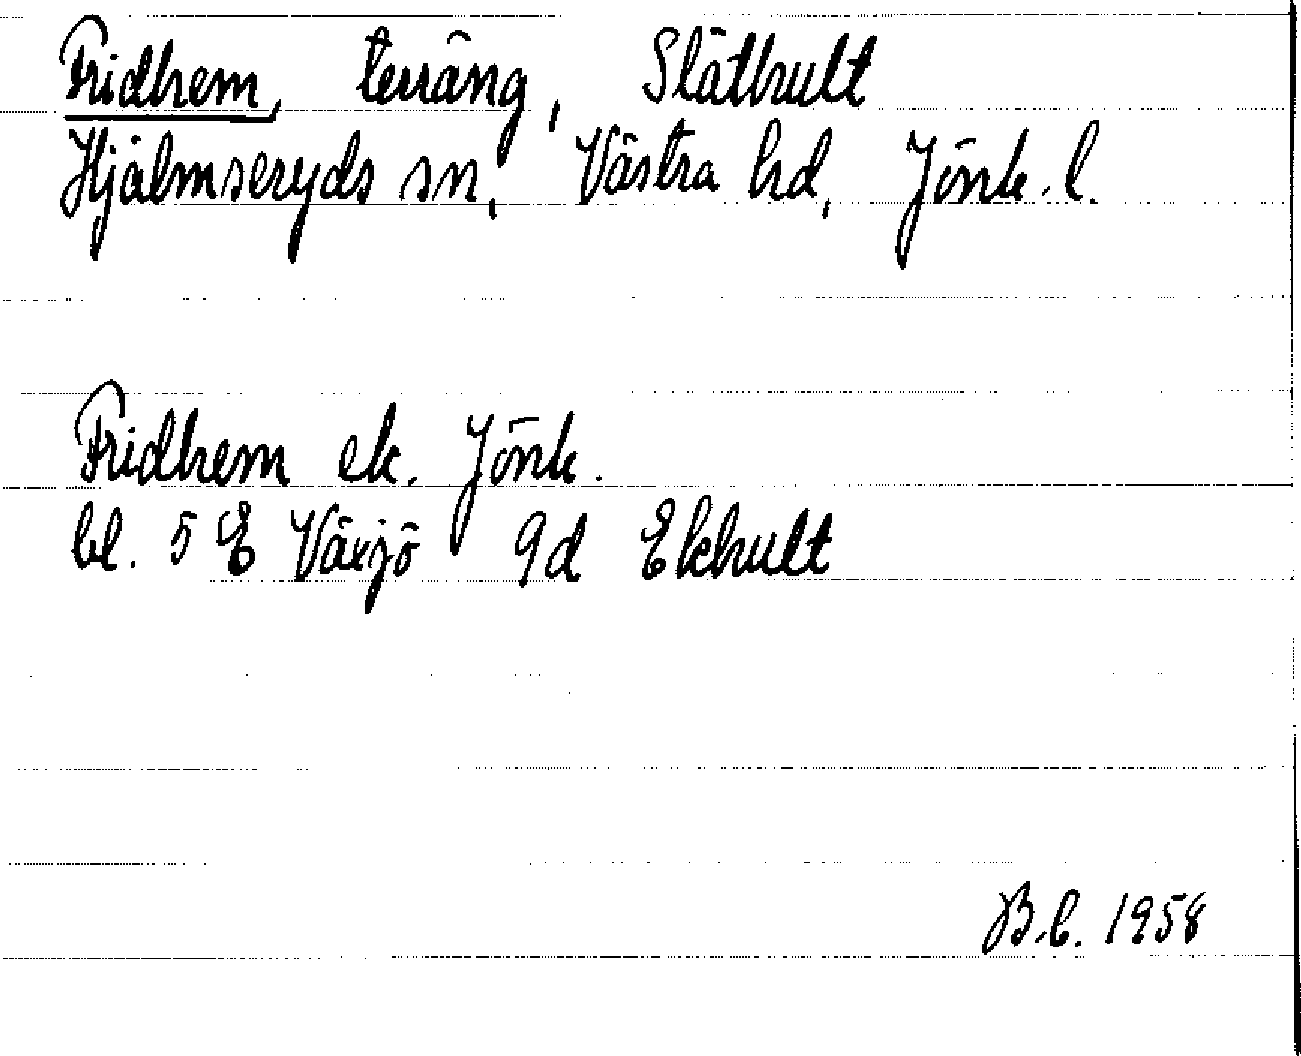 Fridhem, terräng, Släthult
Hjälmseryds sn, Västra hd, Jönk. l.
Fridhem ek. Jönk.
bl. 5 E Växjö 9d Ekhult
B.b. 1958